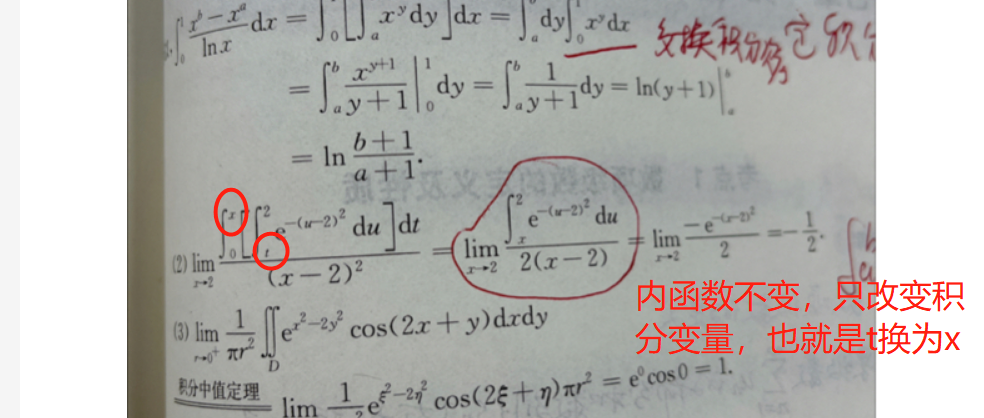 ∫₀¹ (x^b − x^a)/ln x dx = ∫₀¹ [∫ₐᵇ x^y dy] dx = ∫ₐᵇ dy ∫₀¹ x^y dx 交换积分
= ∫ₐᵇ x^(y+1)/(y+1) |₀¹ dy = ∫ₐᵇ 1/(y+1) dy = ln(y+1) |ₐᵇ
= ln (b+1)/(a+1).
(2) lim_(x→2) ∫₀ˣ [∫ₜ² e^(−(u−2)²) du] dt / (x−2)² = lim_(x→2) ∫ₓ² e^(−(u−2)²) du / 2(x−2) = lim_(x→2) −e^(−(x−2)²) / 2 = −1/2.
内函数不变,只改变积
分变量,也就是t换为x
(3) lim_(r→0⁺) 1/(πr²) ∬_D e^(x²−2y²) cos(2x+y)dxdy
积分中值定理 lim e^(ξ²−2η²) cos(2ξ+η)πr² = e⁰cos0 = 1.